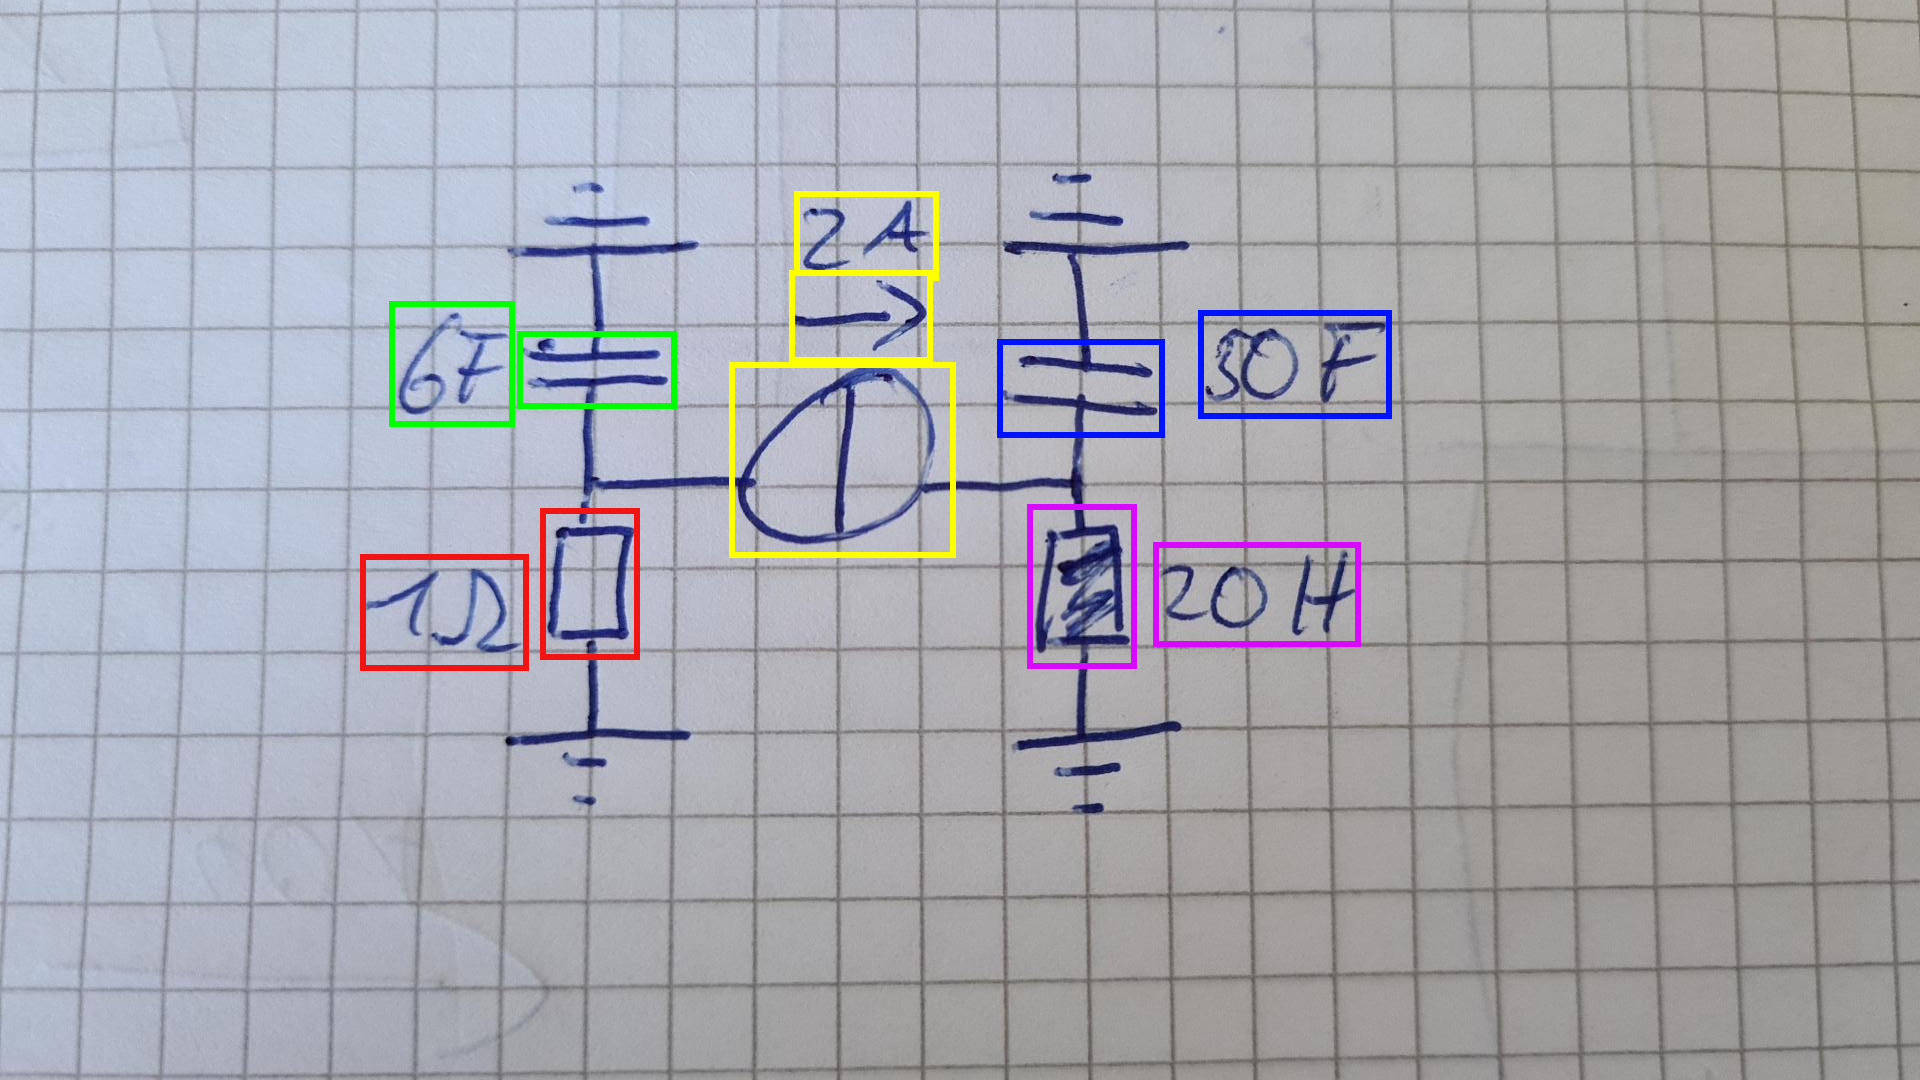 2A
6F
30F
1Ω
20H